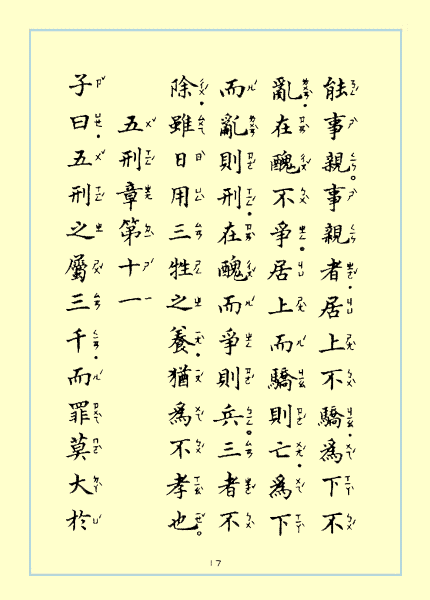 能事親。事親者居上不驕為下不
亂在醜不爭居上而驕則亡為下
而亂則刑在醜而爭則兵。三者不
除雖日用三牲之養猶為不孝也。
五刑章第十一
子曰五刑之屬三千而罪莫大於
17